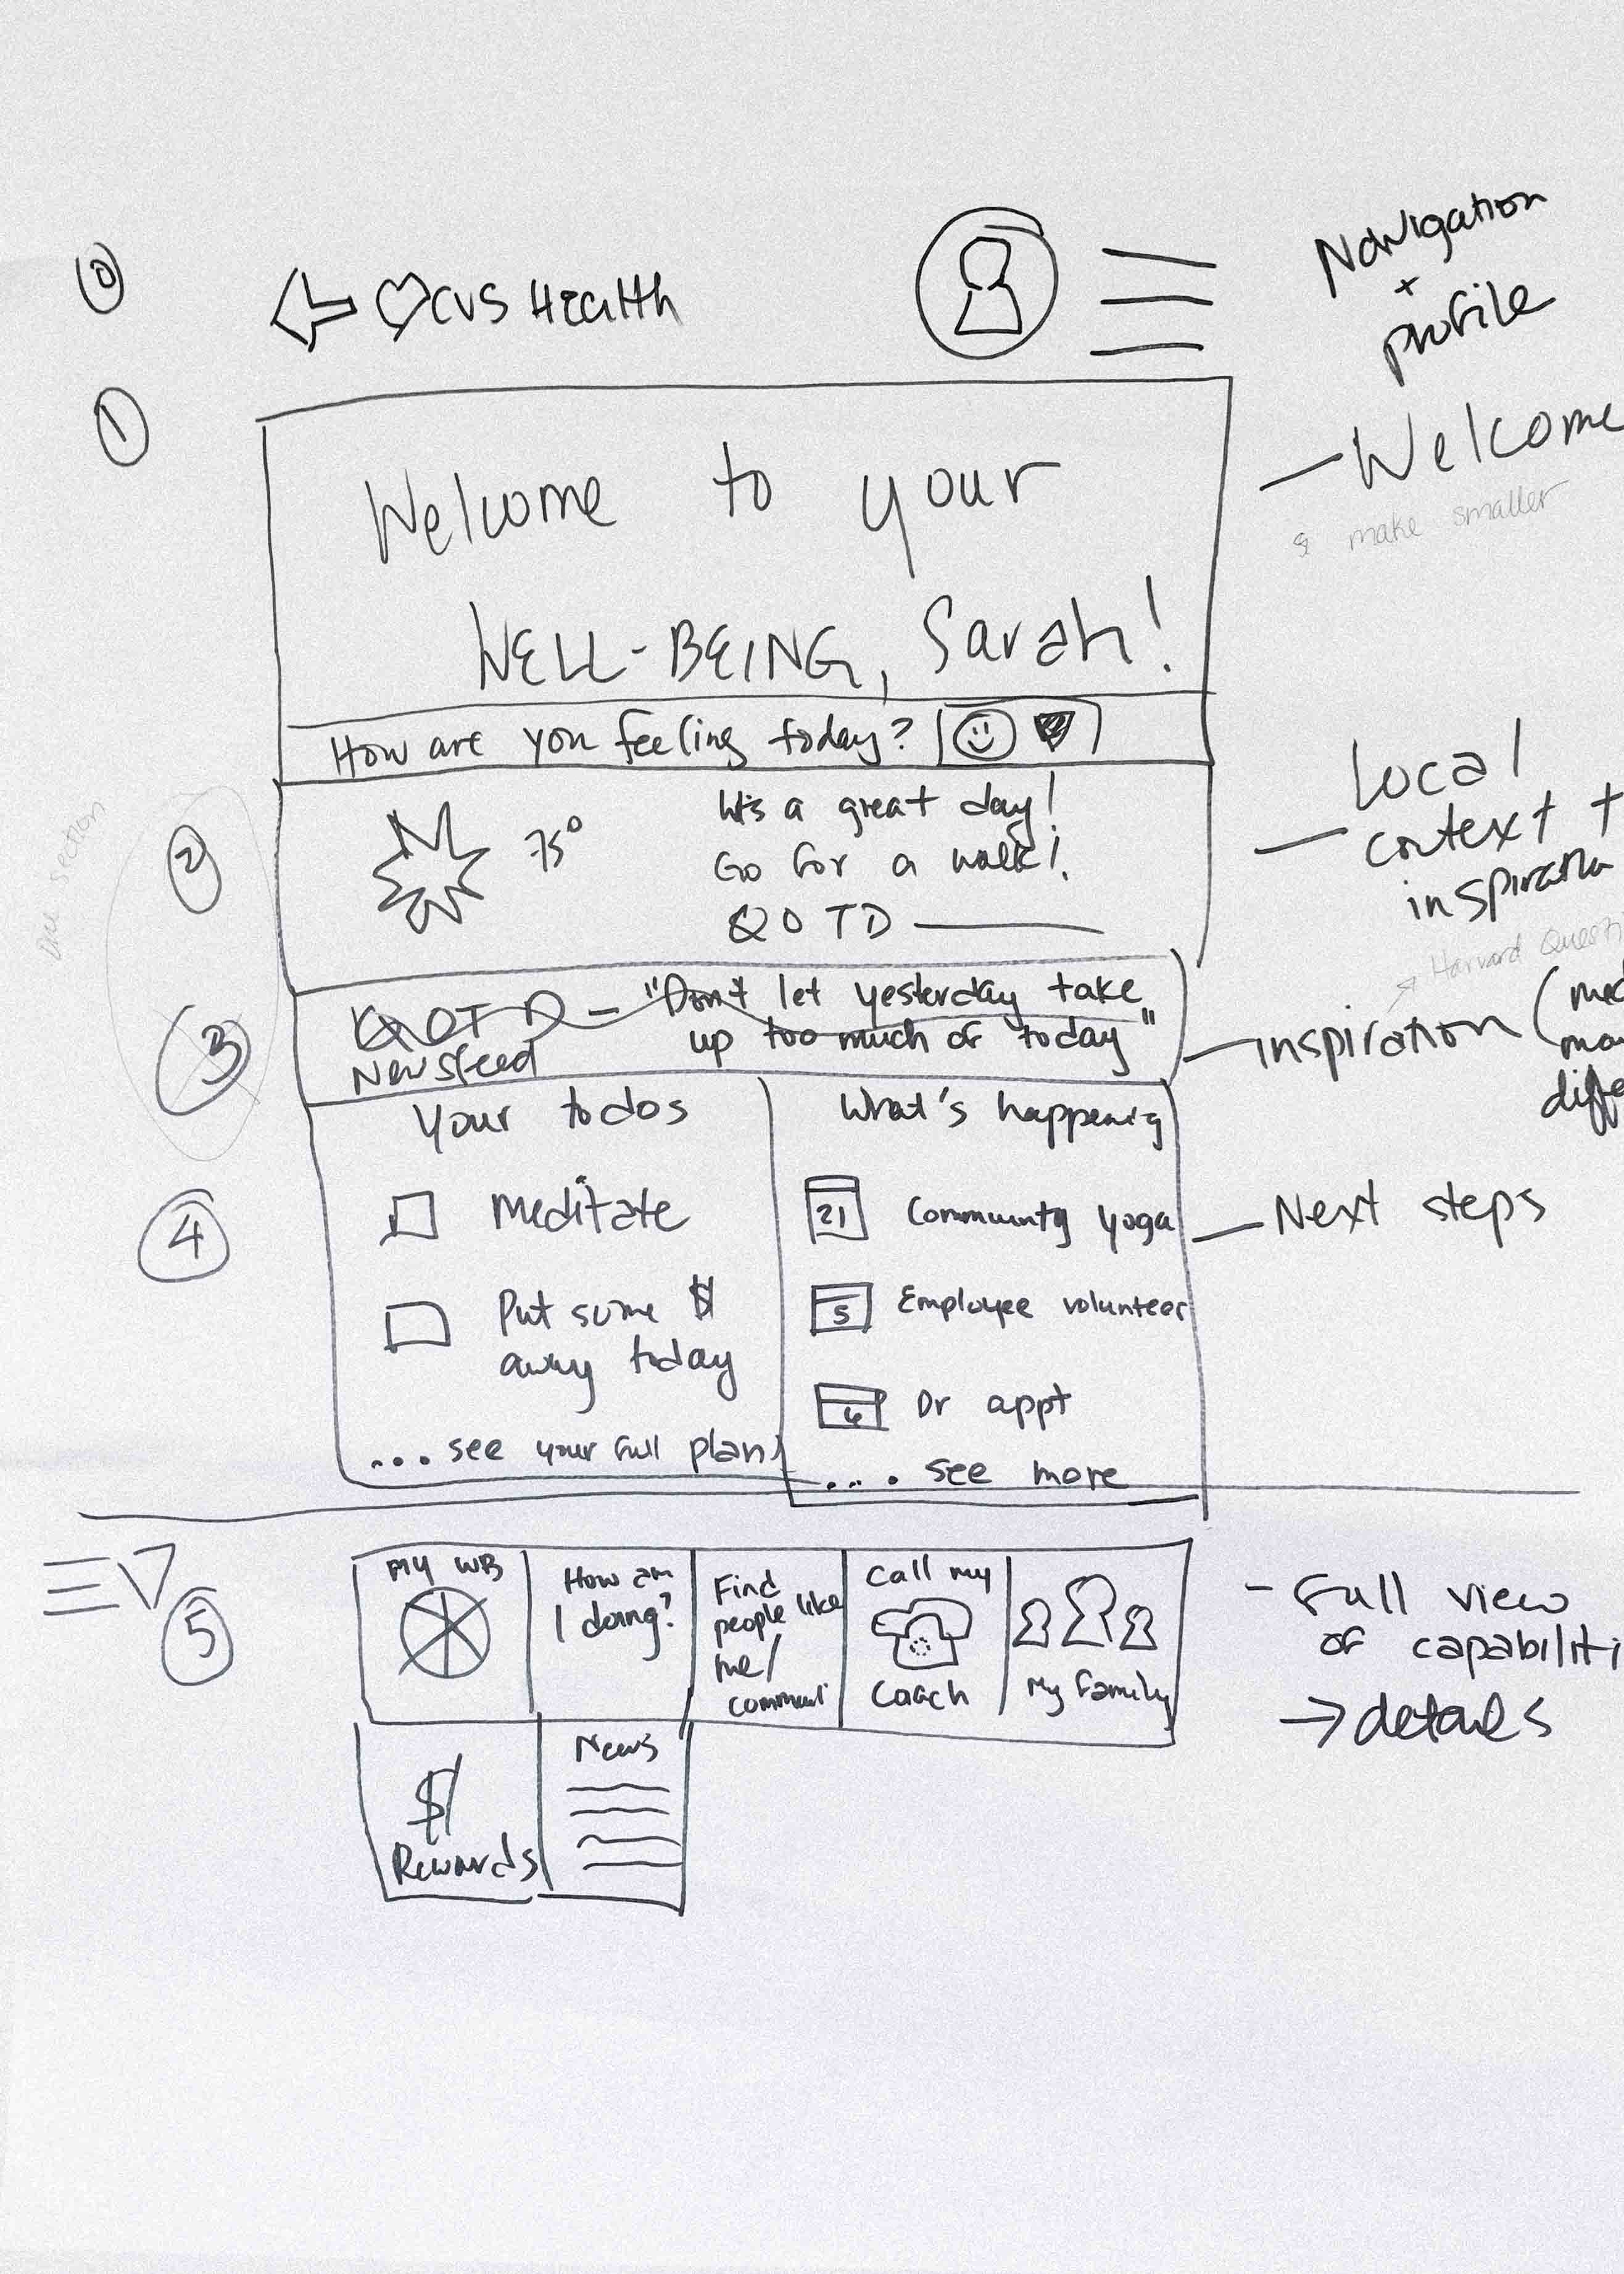 0
CVS Health
Navigation
+
profile
1
Welcome to your
WELL-BEING, Sarah!
Welcome
& make smaller
How are you feeling today?
One section
2
75°
It's a great day!
Go for a walk!
QOTD
Local
context +
Harvard
3
QOTD - "Don't let yesterday take
up too much of today"
Newsfeed
inspiration (
4
Your todos
Meditate
Put some $
away today
.... see your full plan
What's happening
21 Community yoga
5 Employee volunteer
6 Dr appt
.... see more
Next steps
5
My WB
How am
I doing?
Find
people like
me/
Call my
Coach
My family
$
Rewards
News
- Full view
of capabiliti
→ details